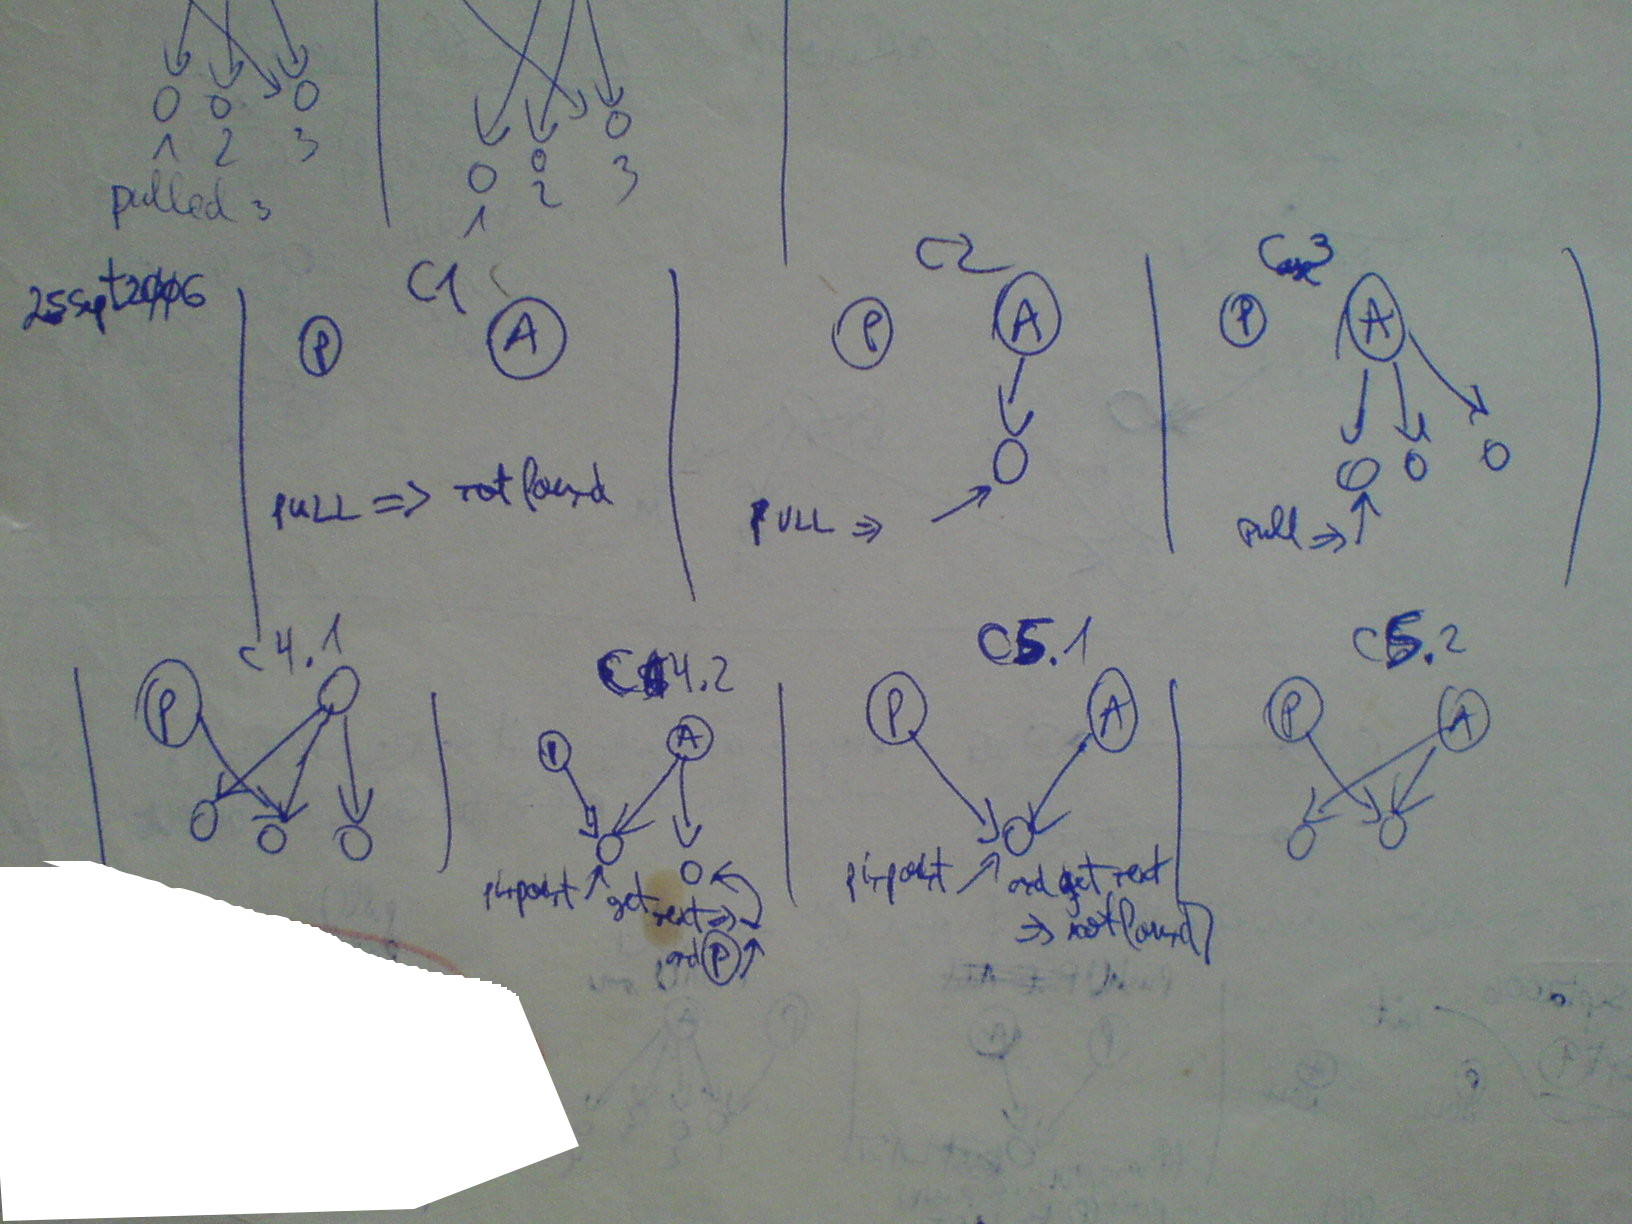 1 2 3
pulled 3
1 2 3
25 Sept 2006
C1
P A
PULL => not found
C2
P A
PULL =>
Case 3
P A
pull =>
C4.1
P
C4.2
P A
pinpoint get
next =>
and P
C5.1
P A
pinpoint and get next
=> not found
C5.2
P A